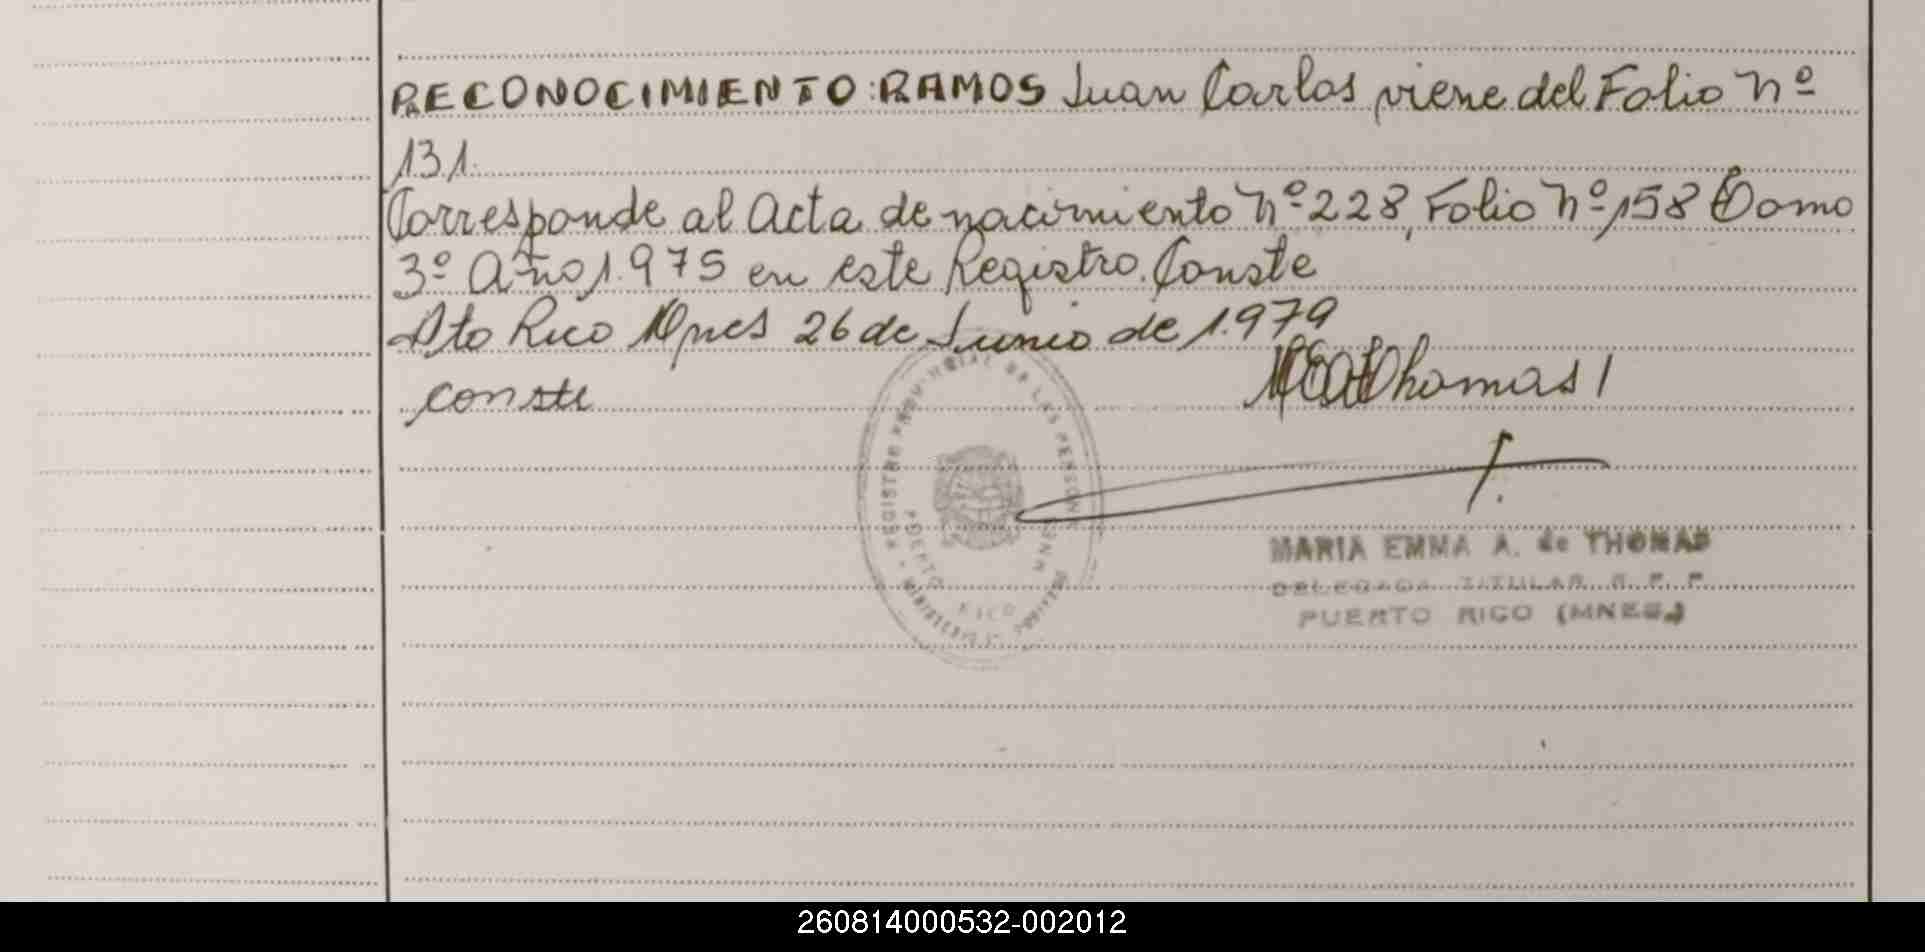 RECONOCIMIENTO: RAMOS Juan Carlos viene del Folio Nº
131.
Corresponde al Acta de nacimiento Nº 228, Folio Nº 158 Tomo
3º Año 1.975 en este Registro. Conste
Pto Rico Mnes 26 de Junio de 1.979
conste
Thomas
REGISTRO PROVINCIAL DE LAS PERSONAS
PUERTO RICO
MNES
MARIA EMMA A. de THOMAS
DELEGADA TITULAR R. P. P.
PUERTO RICO (MNES.)
260814000532-002012